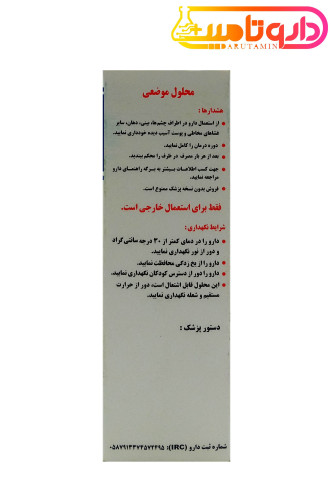 داروتامین
DARUTAMIN
محلول موضعی
هشدارها :
از استعمال دارو در اطراف چشم‌ها، بینی، دهان، سایر
غشاهای مخاطی و پوست آسیب دیده خودداری نمایید.
دوره درمان را کامل نمایید.
بعد از هر بار مصرف در ظرف را محکم ببندید.
جهت کسب اطلاعات بیشتر به برگه راهنمای دارو
مراجعه نمایید.
فروش بدون نسخه پزشک ممنوع است.
فقط برای استعمال خارجی است.
شرایط نگهداری:
دارو را در دمای کمتر از ۳۰ درجه سانتی گراد
و دور از نور نگهداری نمایید.
دارو را از یخ زدگی محافظت نمایید.
دارو را دور از دسترس کودکان نگهداری نمایید.
این محلول قابل اشتعال است، دور از حرارت
مستقیم و شعله نگهداری نمایید.
دستور پزشک :
شماره ثبت دارو (IRC): ۰۵۸۷۹۱۳۳۷۴۵۷۲۴۹۵